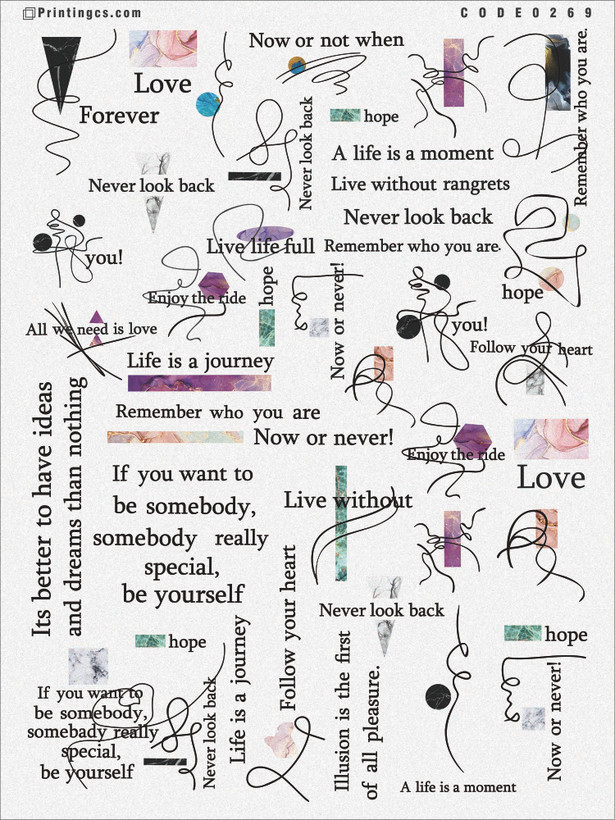 Printingcs.com
CODE0269
Love
Forever
Now or not when
hope
Never look back
Remember who you are.
A life is a moment
Live without rangrets
Never look back
Never look back
Remember who you are.
Live life full
you!
Enjoy the ride
hope
Now or never!
hope
All we need is love
you!
Follow your heart
Life is a journey
Remember who you are
Now or never!
Enjoy the ride
Love
Its better to have ideas
and dreams than nothing
If you want to
be somebody,
somebody really
special,
be yourself
Live without
Follow your heart
Never look back
hope
hope
Life is a journey
Illusion is the first
of all pleasure.
Now or never!
If you want to
be somebody,
somebady really
special,
be yourself
Never look back
A life is a moment